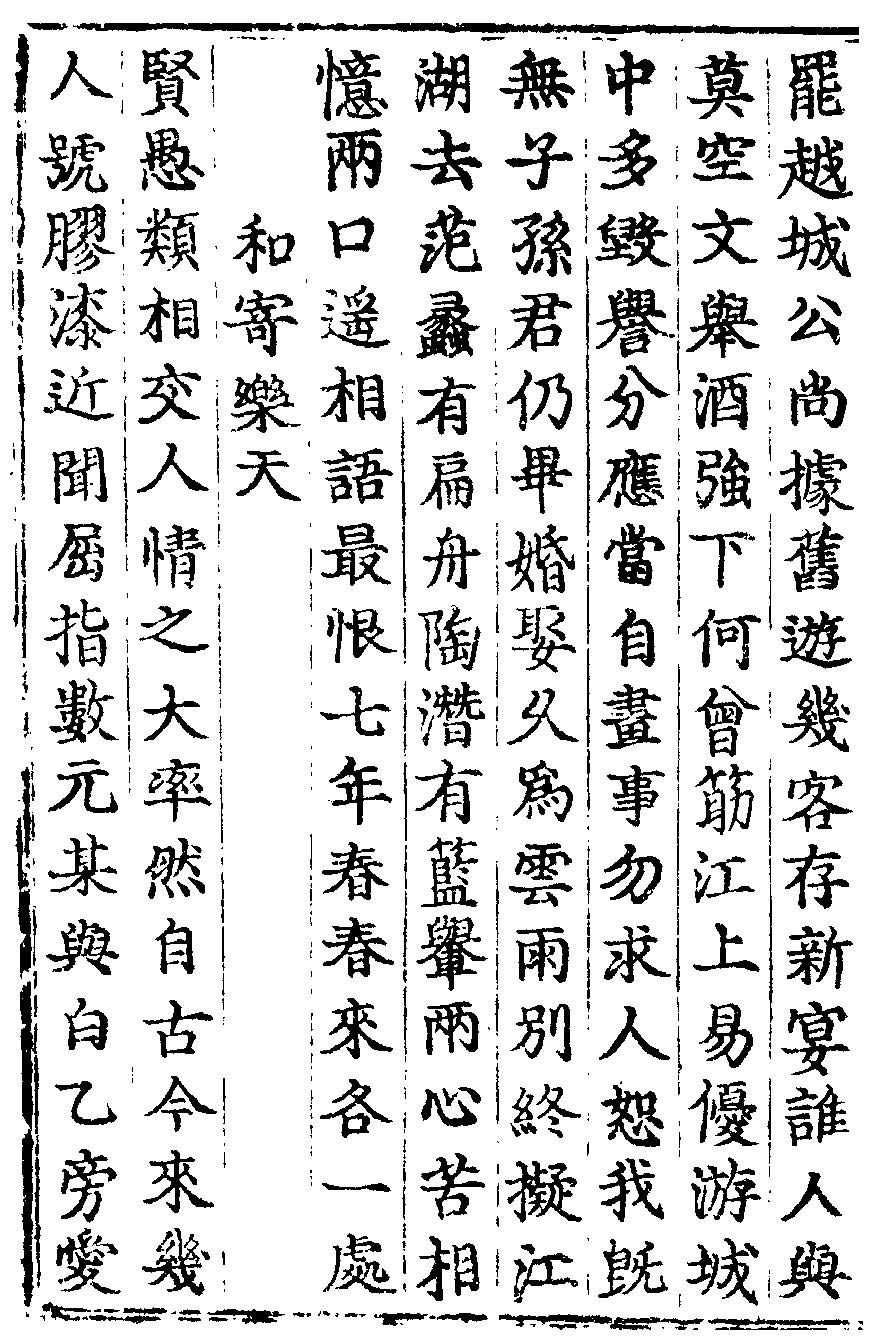 罷越城公尚據舊遊幾客存新宴誰人與
莫空文舉酒強下何曾筯江上易優游城
中多毀譽分應當自畫事勿求人恕我旣
無子孫君仍畢婚娶乆為雲雨別終擬江
湖去范蠡有扁舟陶潛有籃轝兩心苦相
憶兩口遥相語最恨七年春春來各一處
和寄樂天
賢愚類相交人情之大率然自古今來幾
人號膠漆近聞屈指數元某與白乙旁愛